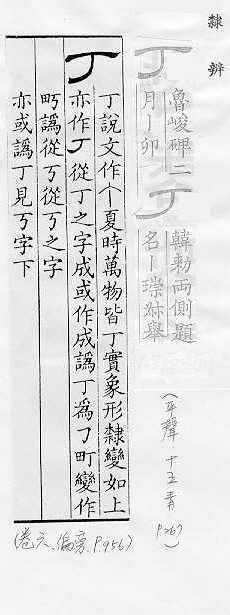 隸辨
丁 魯峻碑二月丨卯
丁 韓勑兩側題名丨瑹姊舉
(平聲 十五青 P.267)
丁 丁說文作个夏時萬物皆丁實象形隸變如上
亦作丁從丁之字成或作成譌丁爲𠃌町變作
町譌從丂從丂之字
亦或譌丁見丂字下
(卷六、偏旁、P.956)